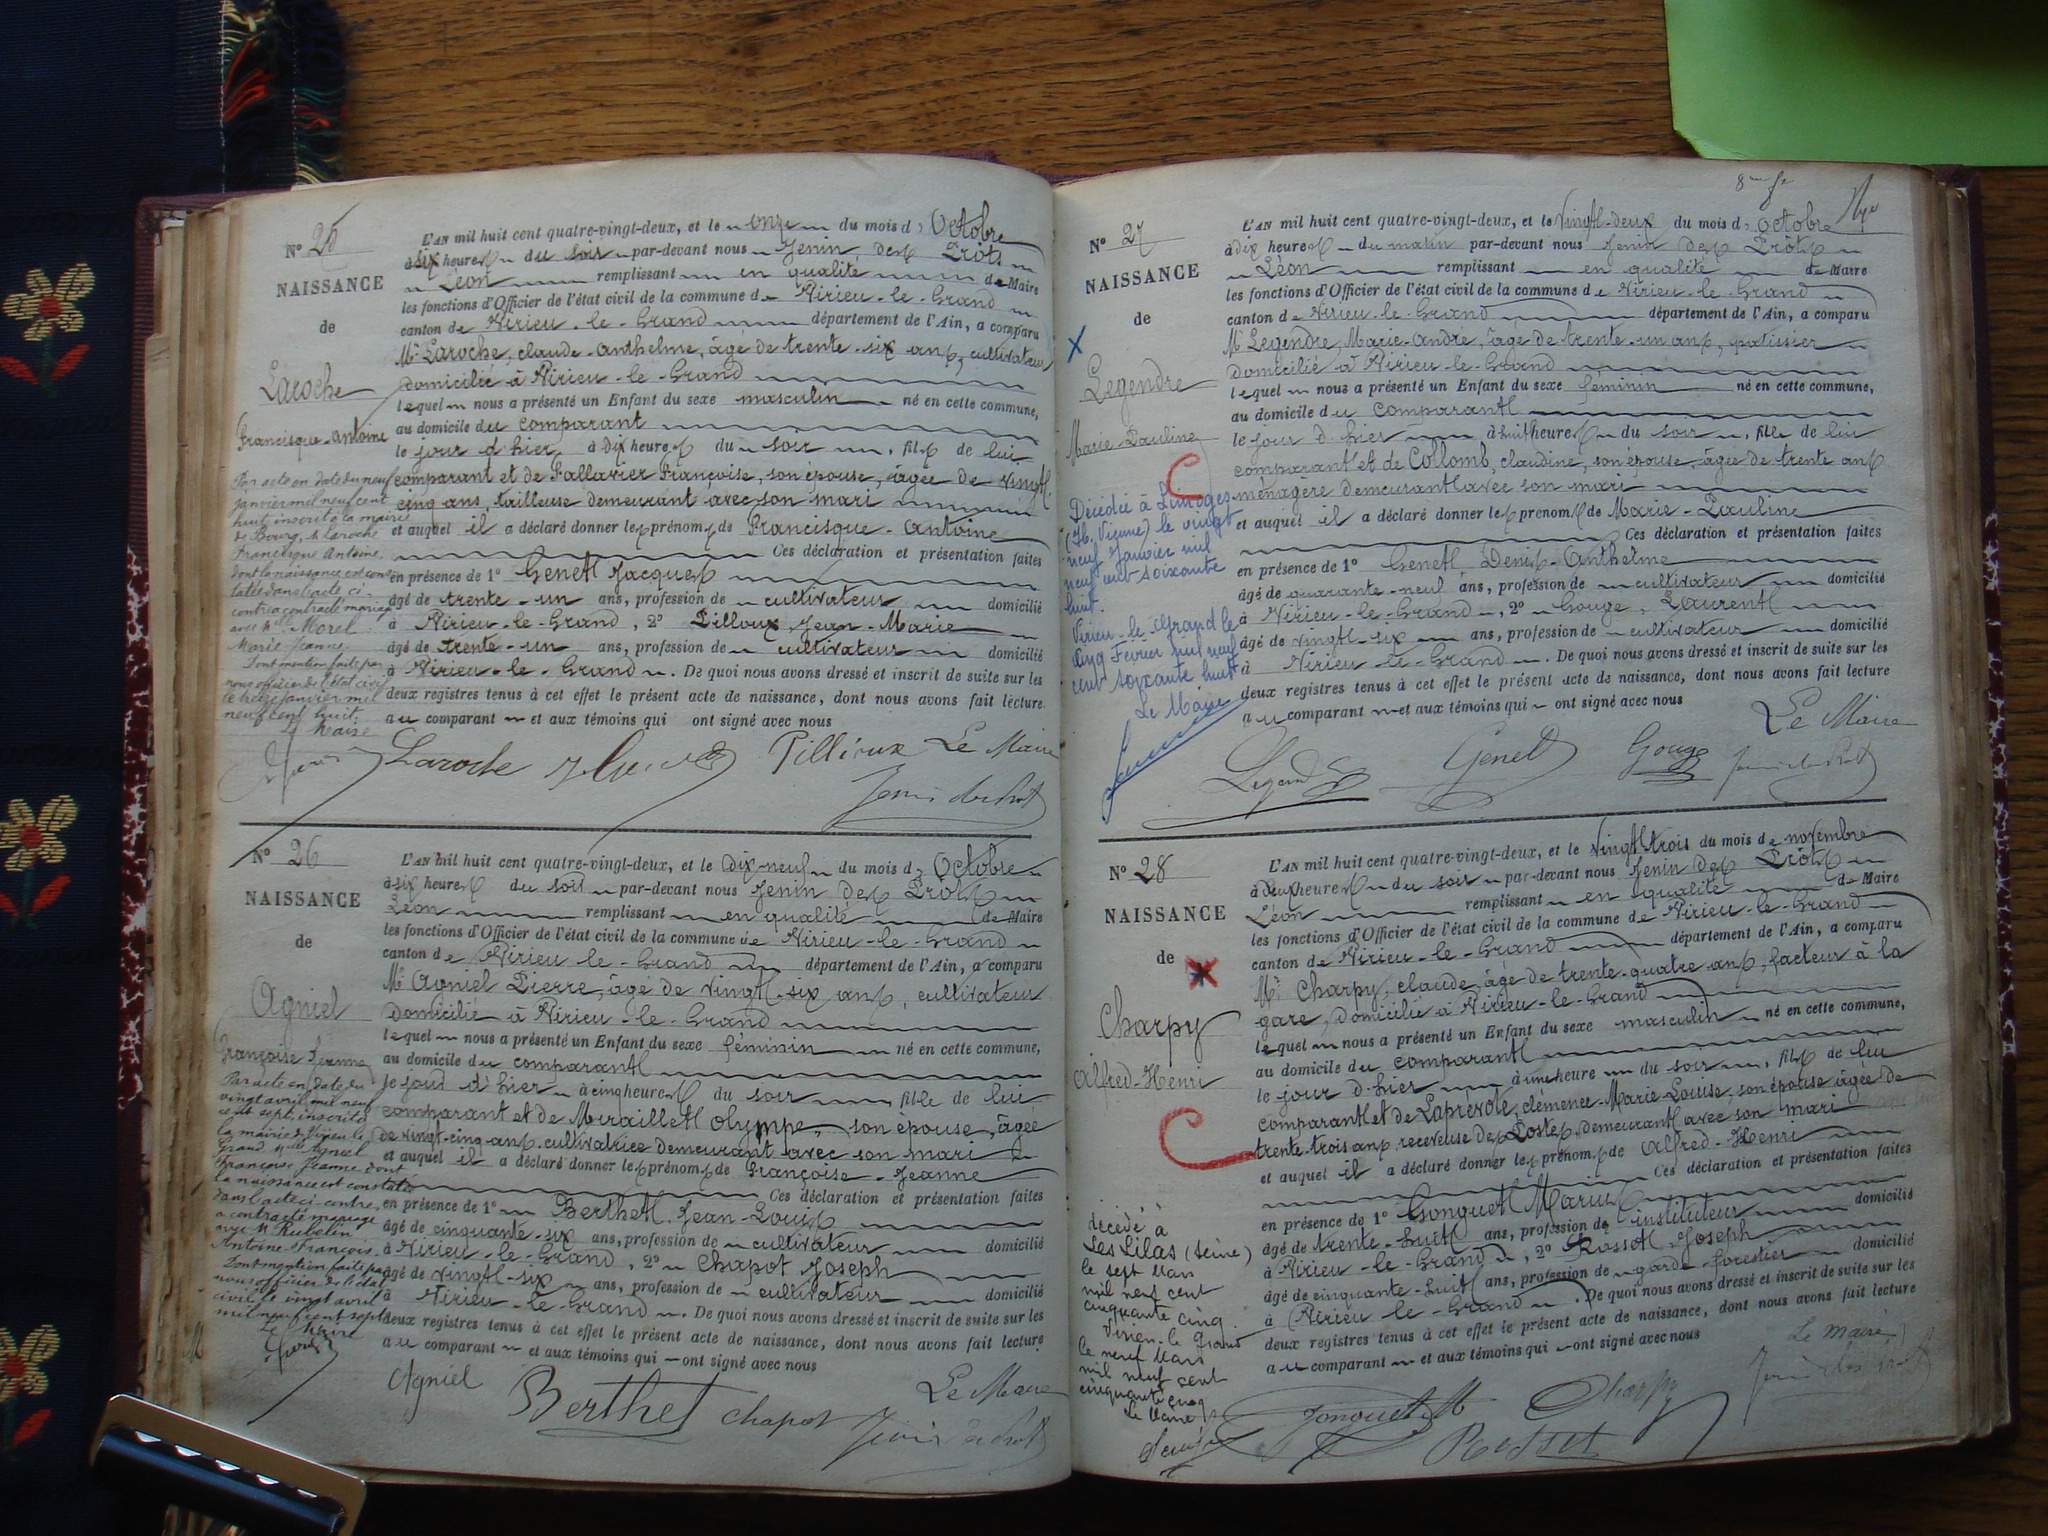 N° 25
NAISSANCE
de
Laroche
Francisque-Antoine
Par acte en date du neuf
janvier mil neuf cent
huit inscrit à la mairie
de Bourg, M. Laroche
Francisque Antoine,
dont la naissance est cons-
tatée dans l'acte ci-
contre a contracté mariage
avec Mlle Morel
Marie Jeanne
Dont mention faite par
nous officier de l'état civil
le treize janvier mil
neuf cent huit.
Le Maire
L'AN mil huit cent quatre-vingt-deux, et le onze du mois d'Octobre
à six heures du soir par-devant nous Jenin des Prôts
Léon remplissant en qualité de Maire
les fonctions d'Officier de l'état civil de la commune de Virieu-le-Grand
canton de Virieu-le-Grand département de l'Ain, a comparu
Mr Laroche, claude-Anthelme, âgé de trente-six ans, cultivateur
domicilié à Virieu-le-Grand
lequel nous a présenté un Enfant du sexe masculin né en cette commune,
au domicile du comparant
le jour d'hier à dix heures du soir, fils de lui
comparant et de Fallavier Françoise, son épouse, âgée de vingt-
cinq ans, tailleuse demeurant avec son mari
et auquel il a déclaré donner les prénoms de Francisque-Antoine
Ces déclaration et présentation faites
en présence de 1° Genett Jacques
âgé de trente-un ans, profession de cultivateur domicilié
à Virieu-le-Grand, 2° Pilloux Jean-Marie
âgé de trente-un ans, profession de cultivateur domicilié
à Virieu-le-Grand. De quoi nous avons dressé et inscrit de suite sur les
deux registres tenus à cet effet le présent acte de naissance, dont nous avons fait lecture
au comparant et aux témoins qui ont signé avec nous
Laroche Pilloux Le Maire
Jenin des Prôts
N° 26
NAISSANCE
de
Agniel
Françoise Jeanne
Par acte en date du
vingt avril mil neuf
cent sept, inscrit à
la mairie de Virieu le
Grand Mlle Agniel
Françoise Jeanne dont
la naissance est constatée
dans l'acte ci-contre
a contracté mariage
avec M. Rubelin
Antoine François
Dont mention faite par
nous officier de l'état
civil le vingt avril
mil neuf cent sept
Le Maire
L'AN mil huit cent quatre-vingt-deux, et le dix-neuf du mois d'Octobre
à six heures du soir par-devant nous Jenin des Prôts
Léon remplissant en qualité de Maire
les fonctions d'Officier de l'état civil de la commune de Virieu-le-Grand
canton de Virieu-le-Grand département de l'Ain, a comparu
Mr Agniel Pierre, âgé de vingt-six ans, cultivateur
domicilié à Virieu-le-Grand
lequel nous a présenté un Enfant du sexe féminin né en cette commune,
au domicile du comparant
le jour d'hier à cinq heures du soir, fille de lui
comparant et de Miraillet olympe, son épouse, âgée
de vingt-cinq ans cultivatrice demeurant avec son mari
et auquel il a déclaré donner les prénoms de Françoise-Jeanne
Ces déclaration et présentation faites
en présence de 1° Berthet Jean-Louis
âgé de cinquante-six ans, profession de cultivateur domicilié
à Virieu-le-Grand, 2° Chapot Joseph
âgé de vingt-six ans, profession de cultivateur domicilié
à Virieu-le-Grand. De quoi nous avons dressé et inscrit de suite sur les
deux registres tenus à cet effet le présent acte de naissance, dont nous avons fait lecture
au comparant et aux témoins qui ont signé avec nous
Agniel Berthet chapot Le Maire
Jenin des Prôts
N° 27
NAISSANCE
de
Legendre
Marie Pauline
Décédée à Limoges
(H. Vienne) le vingt
neuf Janvier mil
neuf cent soixante
huit.
Virieu-le-Grand le
cinq Février mil neuf
cent soixante huit
Le Maire
L'AN mil huit cent quatre-vingt-deux, et le vingt-deux du mois d'octobre
à dix heures du matin par-devant nous Jenin des Prôts
Léon remplissant en qualité de Maire
les fonctions d'Officier de l'état civil de la commune de Virieu-le-Grand
canton de Virieu-le-Grand département de l'Ain, a comparu
Mr Legendre, Marie-André, âgé de trente-un ans, patissier
domicilié à Virieu-le-Grand
lequel nous a présenté un Enfant du sexe féminin né en cette commune,
au domicile du comparant
le jour d'hier à huit heures du soir, fille de lui
comparant et de Collomb, claudine, son épouse, âgée de trente ans
ménagère demeurant avec son mari
et auquel il a déclaré donner les prénoms de Marie-Pauline
Ces déclaration et présentation faites
en présence de 1° Genett Denis-Anthelme
âgé de quarante-neuf ans, profession de cultivateur domicilié
à Virieu-le-Grand, 2° Gouge, Laurent
âgé de vingt-six ans, profession de cultivateur domicilié
à Virieu-le-Grand. De quoi nous avons dressé et inscrit de suite sur les
deux registres tenus à cet effet le présent acte de naissance, dont nous avons fait lecture
au comparant et aux témoins qui ont signé avec nous
Le Maire
Legendre Genet Gouge Jenin des Prôts
N° 28
NAISSANCE
de
Charpy
Alfred-Henri
décédé à
Les Lilas (Seine)
le sept Mars
mil neuf cent
cinquante cinq.
Virieu-le-Grand
le neuf Mars
mil neuf cent
cinquante cinq
Le Maire
L'AN mil huit cent quatre-vingt-deux, et le vingt-trois du mois de novembre
à deux heures du soir par-devant nous Jenin des Prôts
Léon remplissant en qualité de Maire
les fonctions d'Officier de l'état civil de la commune de Virieu-le-Grand
canton de Virieu-le-Grand département de l'Ain, a comparu
Mr Charpy, claude, âgé de trente-quatre ans, facteur à la
gare, domicilié à Virieu-le-Grand
lequel nous a présenté un Enfant du sexe masculin né en cette commune,
au domicile du comparant
le jour d'hier à une heure du soir, fils de lui
comparant et de Laprévote, clémence-Marie Louise, son épouse âgée de
trente-trois ans, receveuse des Postes, demeurant avec son mari
et auquel il a déclaré donner les prénoms de Alfred-Henri
Ces déclaration et présentation faites
en présence de 1° Gonguet Marius
âgé de trente-huit ans, profession de instituteur domicilié
à Virieu-le-Grand, 2° Rosset Joseph
âgé de cinquante-huit ans, profession de garde-forestier domicilié
à Virieu-le-Grand. De quoi nous avons dressé et inscrit de suite sur les
deux registres tenus à cet effet le présent acte de naissance, dont nous avons fait lecture
au comparant et aux témoins qui ont signé avec nous
Le Maire
Charpy
Rosset